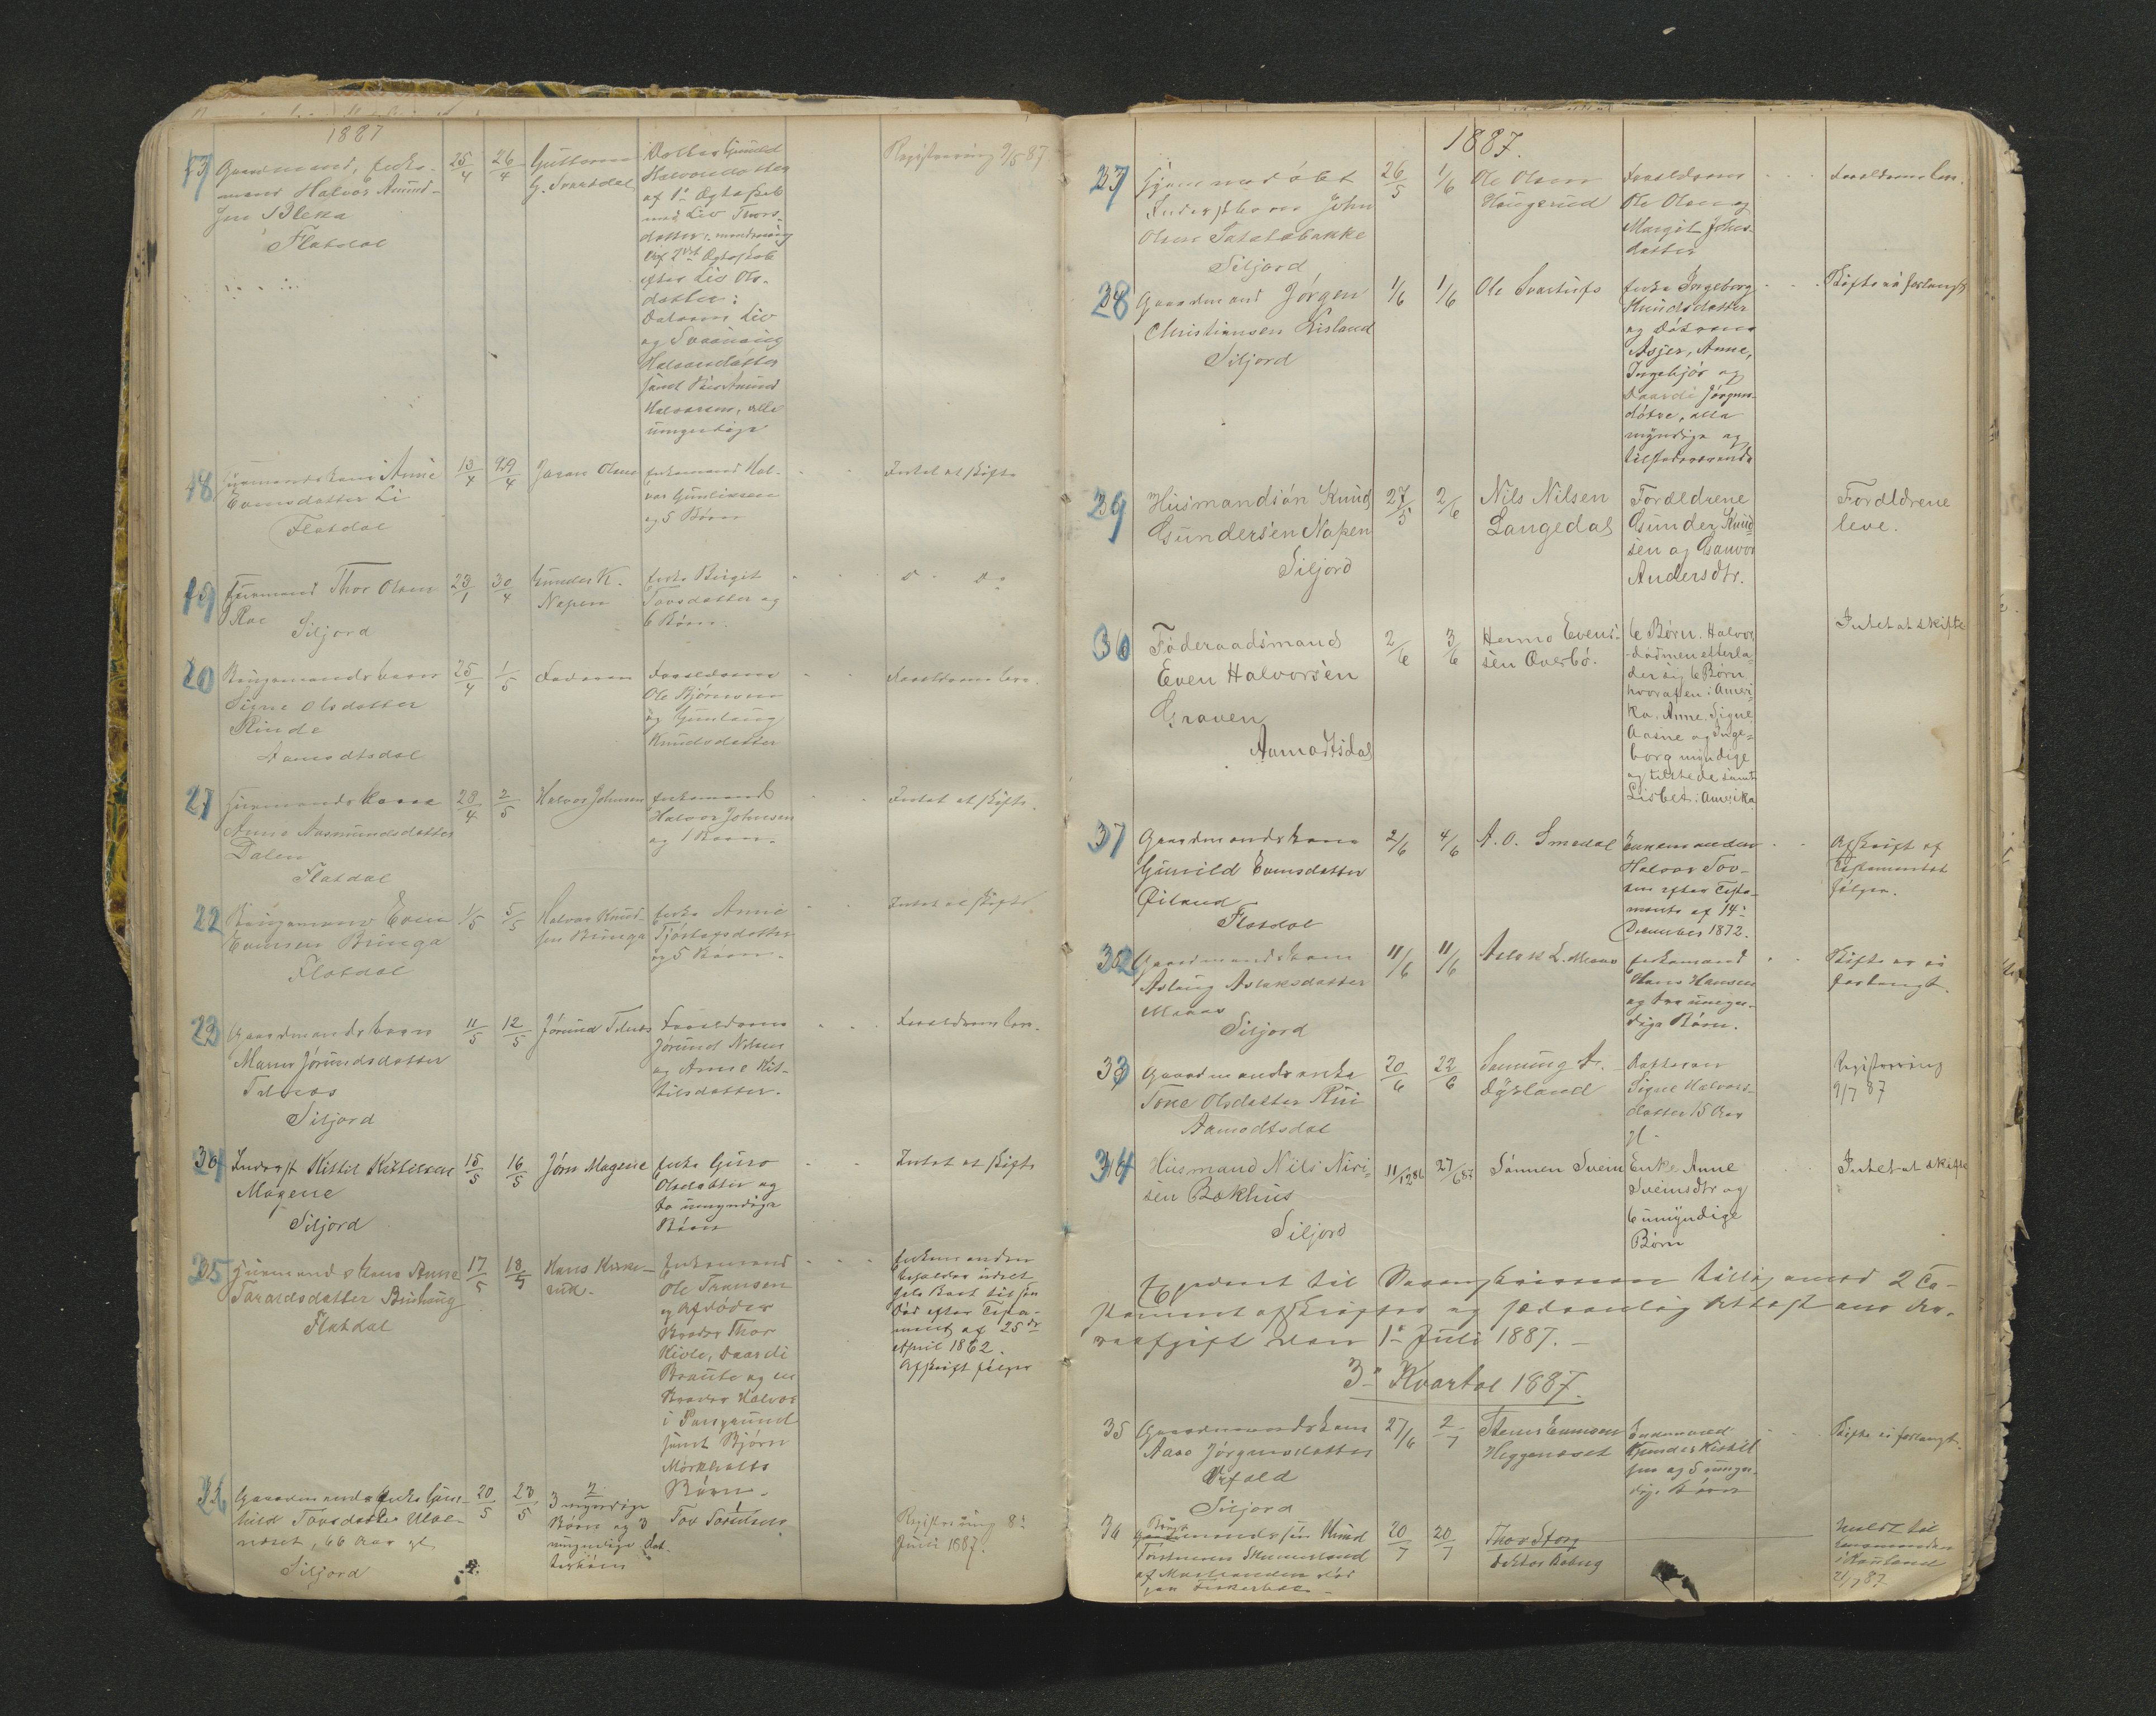 1887
17 Gaardmand, Enke-
mand Halvor Amund-
sen Bleka
Flatdal
25/4 26/4
Guttorm
G. Svartdal
Datter Gunild
Halvorsdatter
af 1ste Ægteskab
med Liv Thors-
datter;
af 2det Ægteskab
efter Liv Ols-
datter:
Døtrene Liv
og Svanaug
Halvorsdøtter
samt Amund
Halvorsen, alle
umyndige
Registrering 9/5 87
18 Husmandskone Anne
Evensdatter Li
Flatdal
13/4 29/4
Jøran Olsen
Enkemand Hal-
vor Gunleiksen
og 5 Børn
Intet at skifte
19 Husmand Thor Olsen
Roe
Siljord
23/1 30/4
Gunder K.
Napen
Enke Birgit
Tovsdatter og
6 Børn.
do do
20 Brugsmandsbarn
Signe Olsdatter
Rinde
Aamodtsdal
25/4 1/5
Faderen
Forældrene
Ole Bjørnsen
og Gunlaug
Knudsdatter
Forældrene leve.
21 Husmandskone
Anne Aasmundsdatter
Dalen
Flatdal
28/4 2/5
Halvor Johnsen
Enkemand
Halvor Johnsen
og 1 Barn.
Intet at skifte.
22 Brugsmand Even
Evensen Bringa
Flatdal
1/5 5/5
Halvor Knud-
sen Bringa
Enke Anne
Tjøstogsdatter
og 5 Børn.
Intet at skifte
23 Gaardmandsbarn
Maren Jørundsdatter
Telnæs
Siljord
11/5 12/5
Jørund Telnæs
Forældrene
Jørund Nilsen
og Anne Kit-
tilsdatter.
Forældrene leve.
24 Inderst Kittil Kittilsen
Mogene
Siljord
15/5 16/5
Jørn Mogene
Enke Guro
Olsdatter og
to umyndige
Børn
Intet at skifte
25 Husmandskone Anne
Taraldsdatter
Flatdal
17/5 18/5
Hans Kirke-
rud.
Enkemand
Ole Transen
og Afdødes
Broder Thor
Kivle, Daardi
Braute og en
Broder Halvor
i Porsgrund
samt Bjørn
Mørkholts
Børn.
Enkemanden
beholder udelt
hele Boet til sin
Død efter Testa-
ment af 25de
April 1862.
Afskrift følger
26 Gaardmandsenke Gun-
hild Tovsdatter Ulve-
næset, 66 Aar gl
Siljord
20/5 23/5
2
3 myndige
Børn og 3
umyndige Dat-
terbørn
1
Tov
Registrering 8de
Juni 1887.
1887.
27 Hjemmedøbt
Inderstbarn John
Olsen Tatatabakke
Siljord
26/5 1/6
Ole Olsen
Haugerud
Forældrene
Ole Olsen og
Margit Johns-
datter
Forældrene leve.
28 Gaardmand Jørgen
Christiansen Lisland
Siljord
1/6 1/6
Ole Svartufs
Enke Ingeborg
Knudsdatter
og Døtrene
Asjer, Anne,
Ingebjør og
Daardi Jørgens-
døtre, alle
myndige og
tilstedeværende
Skifte ei forlangt
29 Husmandsøn Knud
Gundersen Napen
Siljord
27/5 2/6
Nils Nilsen
Langedal
Forældrene
Gunder Knud-
sen og Gunvor
Andersdtr.
Forældrene
leve.
30 Føderaadsmand
Even Halvorsen
Graven
Aamodtsdal
2/6 3/6
Hermo Even-
sen Overbø.
6 Børn. Halvor
død men efterla-
der sig 6 Børn
hvoraf en i Ameri-
ka, Anne, Signe,
Aasne og Inge-
borg myndige
og tilstede samt
Lisbet i Amerika
Intet at skifte
31 Gaardmandskone
Gunild Evensdatter
Øiland
Flatdal
2/6 4/6
A. O. Smedal
Enkemanden
Halvor Tov-
sen efter Testa-
mente af 14de
December 1872.
Afskrift af
Testamentet
følger.
32 Gaardmandskone
Aslaug Aslaksdatter
Moen
Siljord
11/6 11/6
Aslak L. Moen
Enkemand
Hans Hansen
og tre umyn-
dige Børn.
Skifte er ei
forlangt.
33 Gaardmandsenke
Tone Olsdatter Rui
Aamodtsdal
20/6 22/6
Sønnung A.
Dyrland
Datteren
Signe Halvors-
datter 15 Aar
gl.
Registrering
9/7 87
34 Husmand Nils Niri-
sen Bækhus
Siljord
11/12 86 27/6 87
Sønnen Svein
Enke Anne
Sveinsdtr og
6 umyndige
Børn
Intet at skifte
Expederet til Sorenskriveren tilligemed 2 Te-
stament afskrifter og sædvanlig Attest om Ar-
veafgift den 1ste Juli 1887.
3die Kvartal 1887.
35 Gaardmandskone
Aase Jørgensdatter
Ørfald
Siljord
27/6 2/7
Steen Evensen
Heggenæset
Enkemand
Gunder Kittil-
sen og 5 umyn-
dige Børn
Skifte ei forlangt.
36 Brugs
mandssøn Knud
Torstensen Skumsland
af Mo
20/7 20/7
Thov Storg
Doktor Boberg
Meldt til
Lensmanden
i
21/7 87